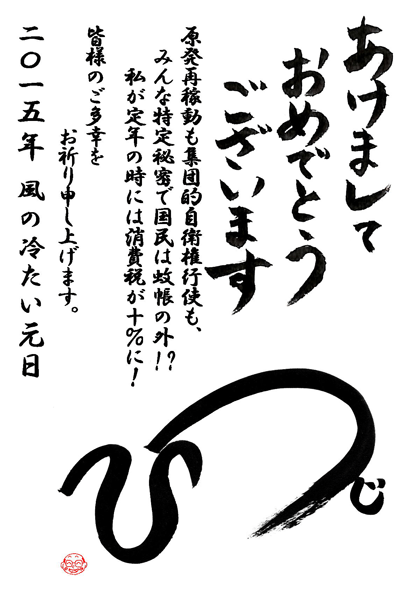 あけまして
おめでとう
ございます
原発再稼動も集団的自衛権行使も、
みんな特定秘密で国民は蚊帳の外!?
私が定年の時には消費税が十%に!
皆様のご多幸を
お祈り申し上げます。
二〇一五年 風の冷たい元日
ひつじ